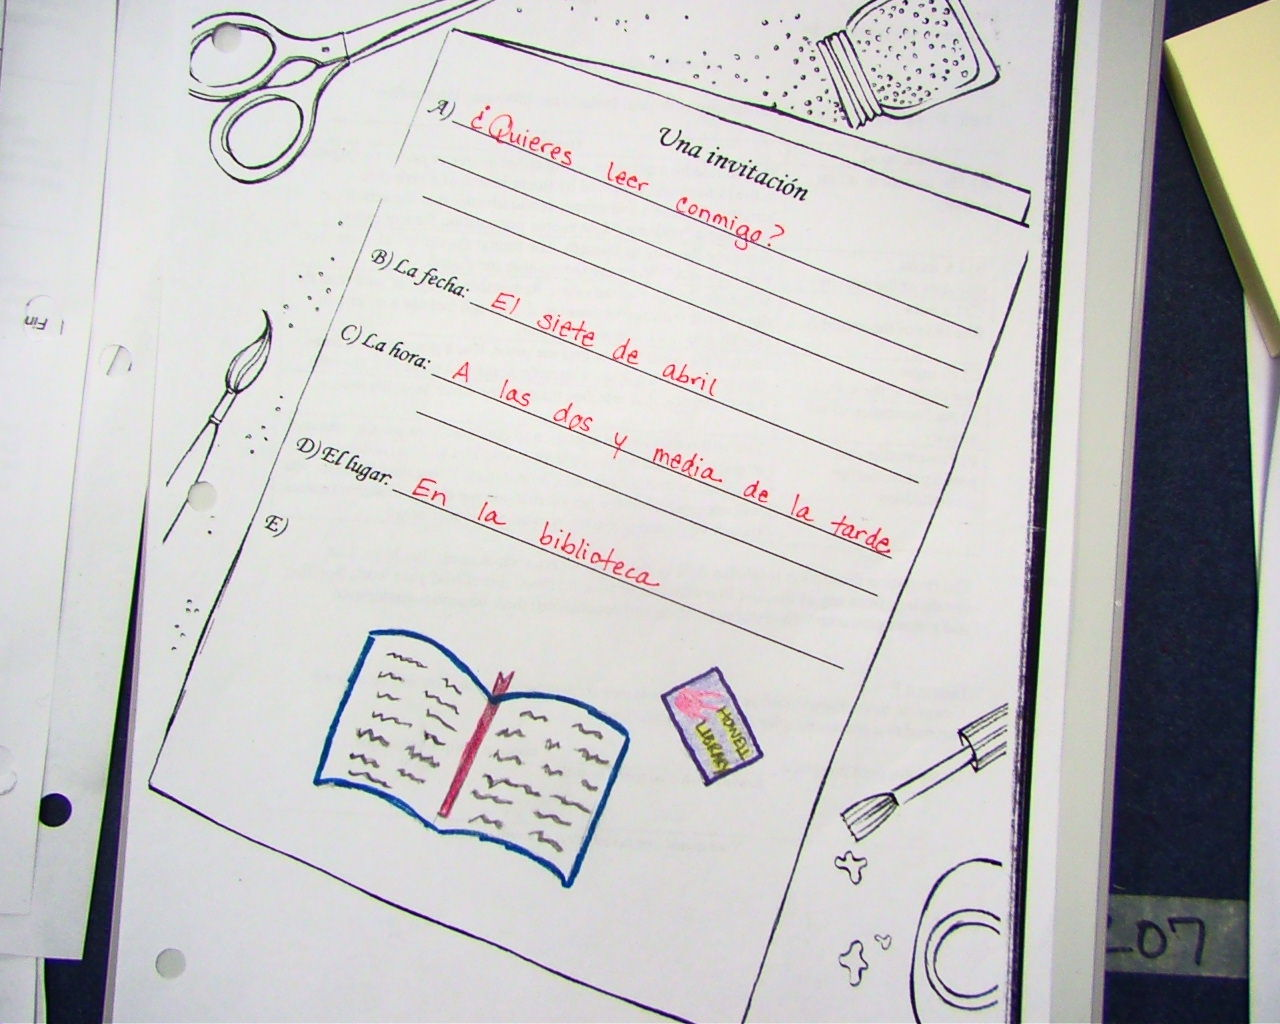 Una invitación
A) ¿Quieres leer conmigo?
B) La fecha: El siete de abril
C) La hora: A las dos y media de la tarde
D) El lugar: En la biblioteca
E)
HOWELL
LIBRARY
1 Fin
207